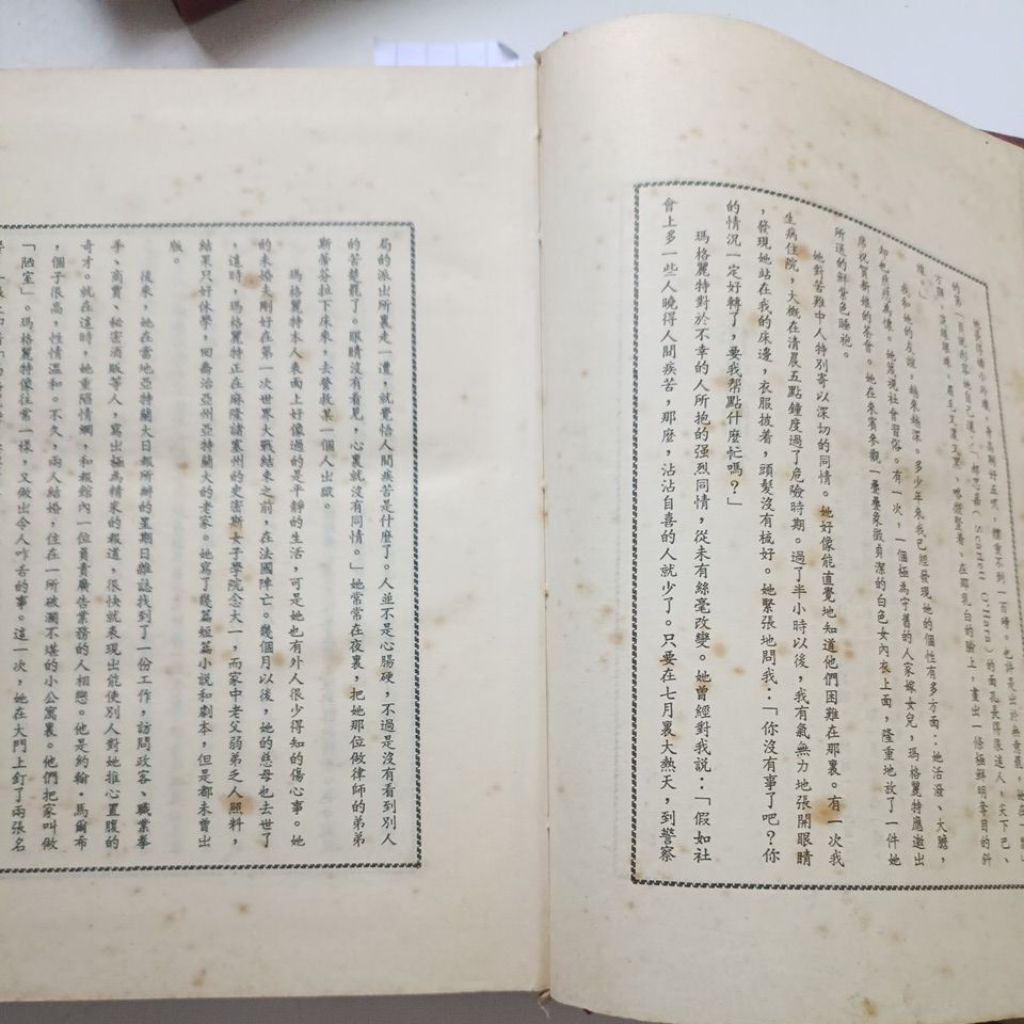 的第一
(Scarlett O'Hara)的面孔長得很迷人，尖下巴、
我和她的友誼，越來越深。多少年來我已經發現她的個性有多方面：她活潑、大膽，
却也
她蔑視社會習俗。有一次，一個極為守舊的人家嫁女兒，瑪格麗特應邀出
席祝賀新娘的茶會。她在來賓來觀一疊疊象徵貞潔的白色女內衣上面，隆重地放了一件她
所送的鮮紫色睡袍。
她對苦難中人特別寄以深切的同情。她好像能直覺地知道他們困難在那裏。有一次我
生病住院，大概在清晨五點鐘度過了危險時期。過了半小時以後，我有氣無力地張開眼睛
，發現她站在我的床邊，衣服披着，頭髮沒有梳好。她緊張地問我：「你沒有事了吧？你
的情況一定好轉了，要我帮點什麼忙嗎？」
瑪格麗特對於不幸的人所抱的强烈同情，從未有絲毫改變。她曾經對我説：「假如社
會上多一些人曉得人間疾苦，那麼，沾沾自喜的人就少了。只要在七月裏大熱天，到警察
局的派出所裏走一遭，就覺悟人間疾苦是什麼了。人並不是心腸硬，不過是沒有看到別人
的苦楚罷了。眼睛沒有看見，心裏就沒有同情。」她常常在夜裏，把她那位做律師的弟弟
斯蒂芬拉下床來，去營救某一個人出獄。
瑪格麗特本人表面上好像過的是平靜的生活，可是她也有外人很少得知的傷心事。她
的未婚夫剛好在第一次世界大戰結束之前，在法國陣亡。幾個月以後，她的慈母也去世了
，這時，瑪格麗特正在麻隆諸塞州的史密斯女子學院念大一，而家中老父弱弟乏人照料，
結果只好休學，回喬治亞州亞特蘭大的老家。她寫了幾篇短篇小說和劇本，但是都未曾出
版。
後來，她在當地亞特蘭大日報所辦的星期日雜誌找到了一份工作，訪問政客、職業拳
手、商賈、秘密酒販等人，寫出極為精采的報道，很快就表現出能使別人對她推心置腹的
奇才。就在這時，她重陷情網，和報館內一位負責廣告業務的人相戀。他是約翰·馬爾希
，個子很高，性情溫和。不久，兩人結婚，住在一所破瀾不堪的小公寓裏。他們把家叫做
「陋室」。瑪格麗特像往常一樣，又做出令人咋舌的事。這一次，她在大門上釘了兩張名